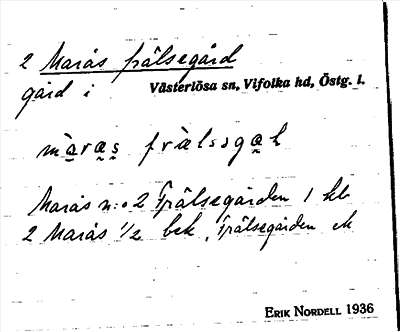 2 Marås frälsegård
gård i Västerlösa sn, Vifolka hd, Östg. l.
màras frälssgaḷ
Marås n:o 2 Frälsegården 1 hb
2 Marås 1/2 bek, Frälsegården ek
ERIK NORDELL 1936